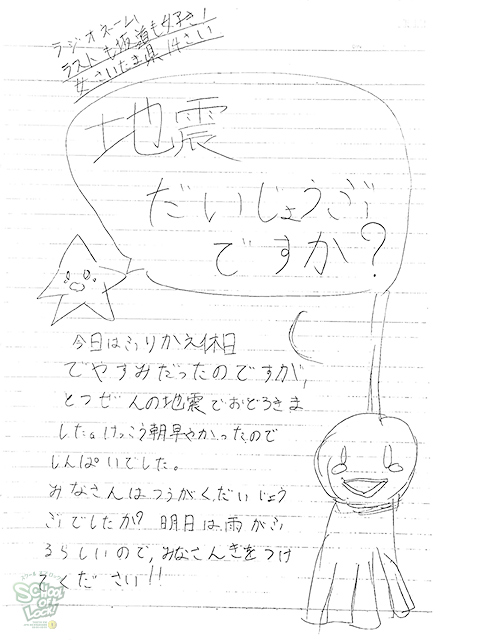 ラジオネーム!
ラストも坂道も好き!
女 さいたま県 14さい
地震
だいじょうぶ
ですか?
今日はふりかえ休日
でやすみだったのですが、
とつぜんの地震でおどろきま
した。けっこう朝早やかったので
しんぱいでした。
みなさんはつうがくだいじょう
ぶでしたか? 明日は雨がふ
るらしいので、みなさんきをつけ
てください!!
SCHOOL
OF
LOCK!